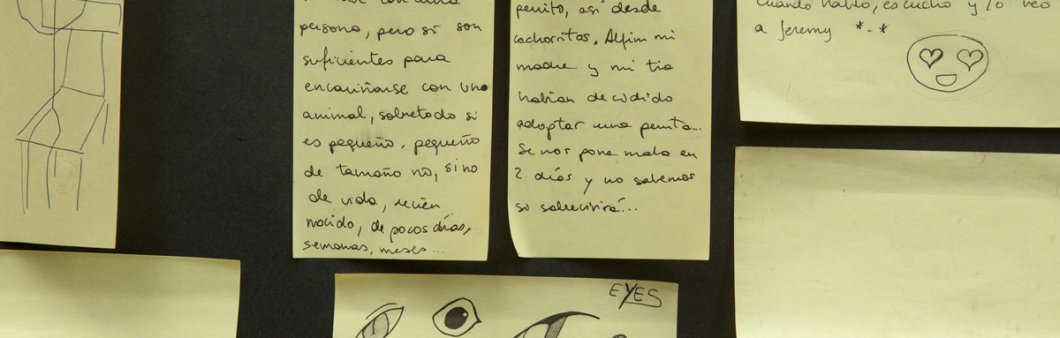 persona, pero si son
suficientes para
encariñarse con una
animal, sobretodo si
es pequeño, pequeño
de tamaño no, sino
de vida, recién
nacido, de pocos días,
semanas, meses...
perrito, así desde
cachorritos. Alfin mi
madre y mi tia
habian decidido
adoptar una perrita...
Se nos pone mala en
2 días y no sabemos
si sobrevivirá...
Cuando hablo, escucho y lo veo
a Jeremy *-*
EYES